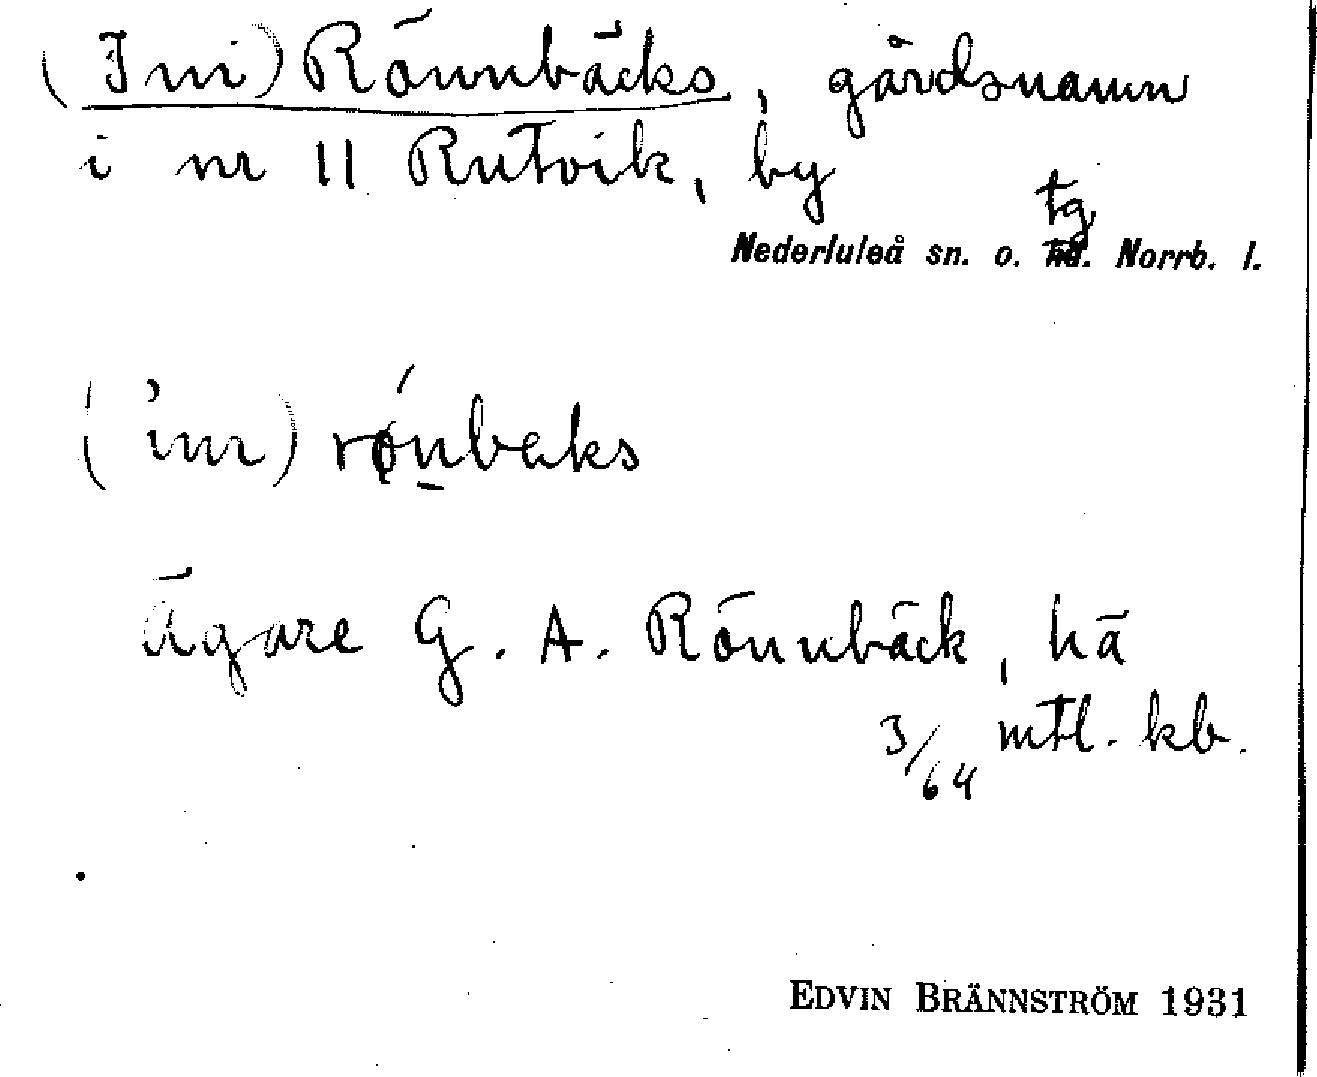 (Ini) Rönnbäcks, gårdsnamn
i nr 11 Rutvik, by
tg
Nederluleå sn. o. hd. Norrb. l.
rønbeks
Ägare G. A. Rönnbäck, hä
3/64 mtl. kb.
EDVIN BRÄNNSTRÖM 1931